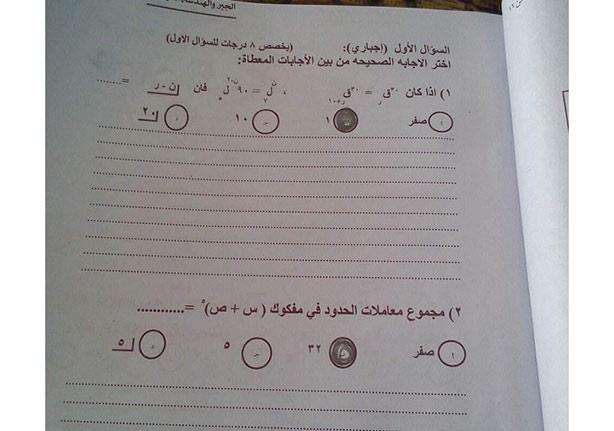 الجبر والهندسة
السؤال الأول (إجباري): (يخصص ٨ درجات للسؤال الاول)
اختر الاجابه الصحيحه من بين الأجابات المعطاة:
١) اذا كان ٣٠ق ر = ٣٠ق ر+١٠ ، ن ل ٧ = ٩٠ ن-٢ ل ٥ فان ⌊ن - ر = ........
أ صفر ب ١ جـ ١٠ د ⌊٢٠
٢) مجموع معاملات الحدود في مفكوك ( س + ص)٥ =............
أ صفر ب ٣٢ جـ ٥ د ⌊٥